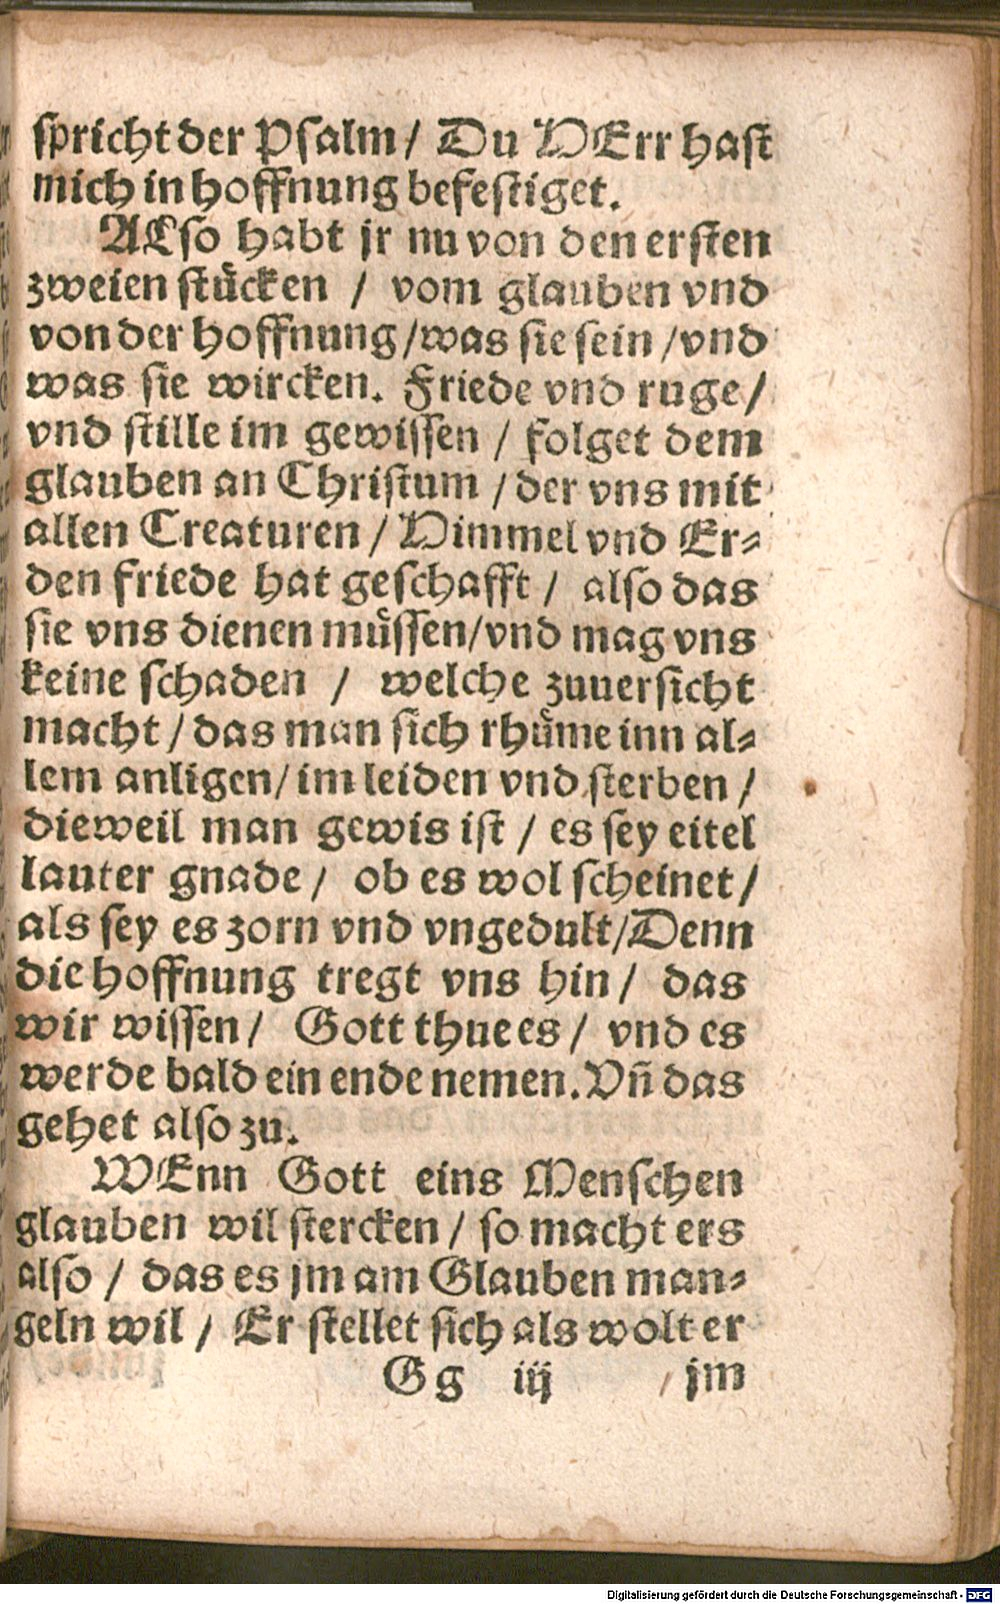 spricht der Psalm / Du HErr hast
mich in hoffnung befestiget.
ALso habt jr nu von den ersten
zweien stücken / vom glauben vnd
von der hoffnung / was sie sein / vnd
was sie wircken. Friede vnd ruge /
vnd stille im gewissen / folget dem
glauben an Christum / der vns mit
allen Creaturen / Himmel vnd Er-
den friede hat geschafft / also das
sie vns dienen müssen / vnd mag vns
keine schaden / welche zuuersicht
macht / das man sich rhüme inn al-
lem anligen / im leiden vnd sterben /
dieweil man gewis ist / es sey eitel
lauter gnade / ob es wol scheinet /
als sey es zorn vnd vngedult / Denn
die hoffnung tregt vns hin / das
wir wissen / Gott thue es / vnd es
werde bald ein ende nemen. Vñ das
gehet also zu.
WEnn Gott eins Menschen
glauben wil stercken / so macht ers
also / das es jm am Glauben man-
geln wil / Er stellet sich als wolt er
Gg iij jm
Digitalisierung gefördert durch die Deutsche Forschungsgemeinschaft - DFG